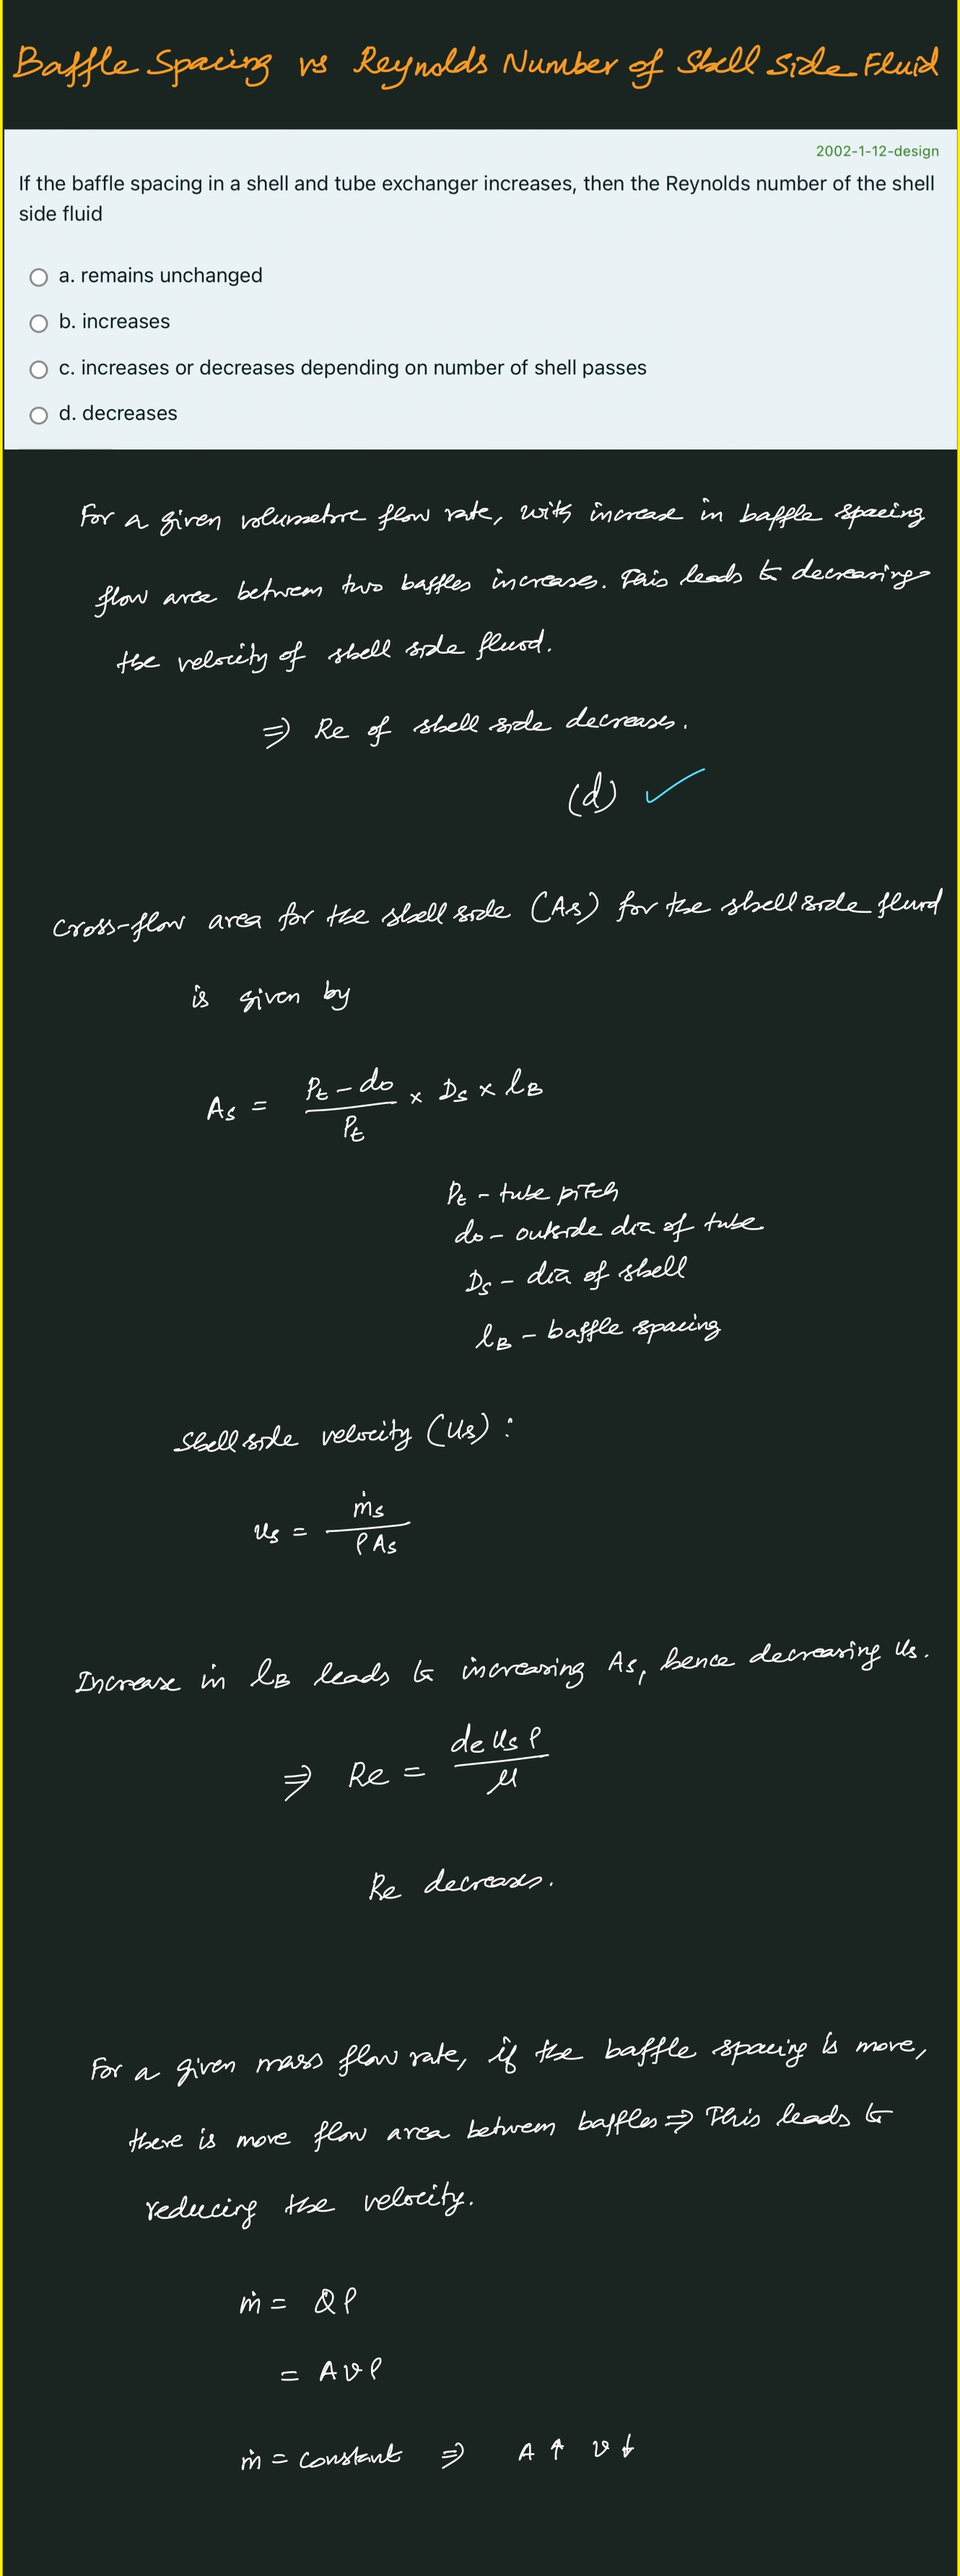 Baffle Spacing vs Reynolds Number of Shell Side Fluid
2002-1-12-design
If the baffle spacing in a shell and tube exchanger increases, then the Reynolds number of the shell
side fluid
a. remains unchanged
b. increases
c. increases or decreases depending on number of shell passes
d. decreases
For a given volumetric flow rate, with increase in baffle spacing
flow area between two baffles increases. This leads to decreasing
the velocity of shell side fluid.
⇒ Re of shell side decreases.
(d) ✓
Cross-flow area for the shell side (As) for the shell side fluid
is given by
As = (Pt - do)/Pt × Ds × lB
Pt - tube pitch
do - outside dia of tube
Ds - dia of shell
lB - baffle spacing
Shell side velocity (us) :
us = ṁs/(ρ As)
Increase in lB leads to increasing As, hence decreasing us.
⇒ Re = (de us ρ)/μ
Re decreases.
For a given mass flow rate, if the baffle spacing is more,
there is more flow area between baffles ⇒ This leads to
reducing the velocity.
ṁ = Qρ
= Avρ
ṁ = constant ⇒ A ↑ v ↓